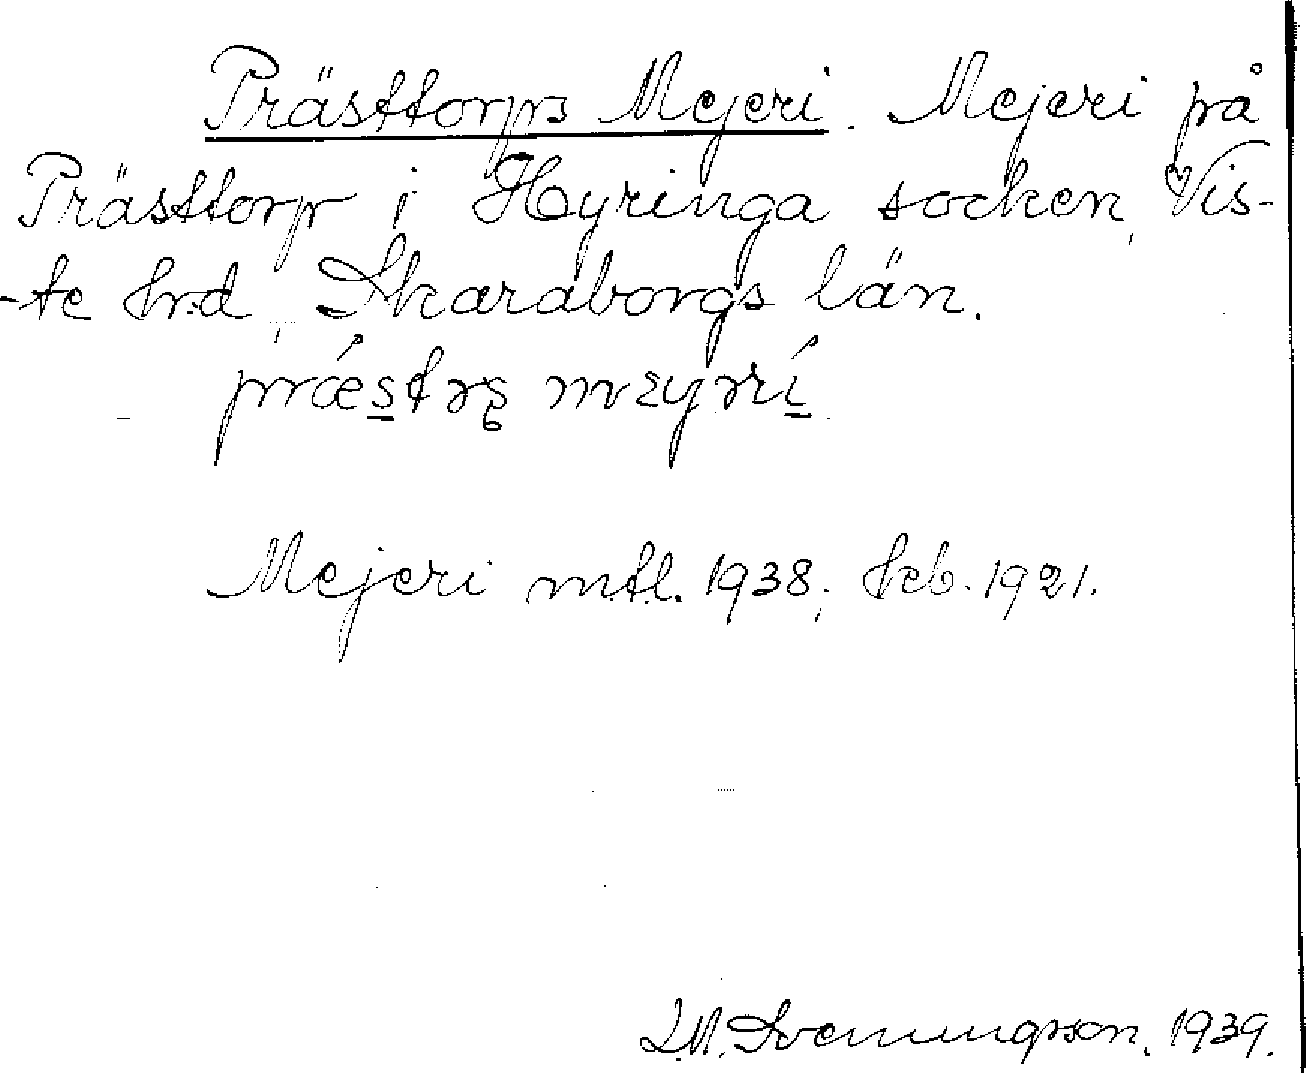 Prästtorps Mejeri. Mejeri på
Prästtorp i Hyringa socken, Vis-
-te hrd, Skaraborgs län.
Mejeri mtl. 1938; teb. 1921.
Svenningsson. 1939.